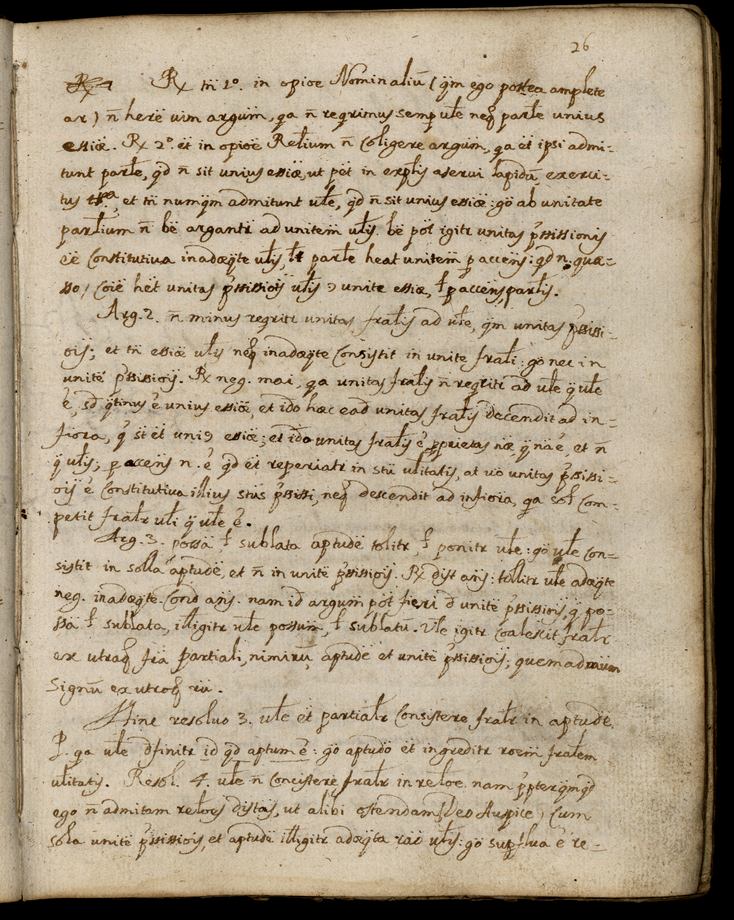 26
Rx tñ 1º. in opiõe Nominaliũ (q̃m ego postea amplẽte
ar) ñ herẽ uim argum̃, qa ñ reqrimus semp uƚe neq̃ parƚe unius
essiæ. Rx 2º ẽt in opiõe Reƚium ñ Coƚigere argum̃, qa ẽt ipsi admi-
tunt parƚe, qd ñ sit unius essiæ, ut pẽt in expƚis aserui lapidũ, exerci-
tus et tñ numq̃m admitunt uƚe, qd ñ sit unius essiæ: gõ ab unitate
parƚium ñ bẽ arguntr ad unitem̃ uƚis. bẽ põt igitr unitas p̃ssissionis
ẽe Constitutiua inadæq̃te uƚis, ƚt parƚe heat unitem̃ p accẽns: qd n. quæ-
so, Coiẽ hẽt unitas p̃ssissiõis uƚis unite essiæ, ƚ p accẽns parƚis.
Arg. 2. ñ minus reqritr unitas fraƚis ad uƚe, q̃m unitas p̃ssissi-
õis; et tñ essiæ uƚis neq̃ inadæq̃te Consistit in unite fraƚi: gõ nec in
unitẽ p̃ssissiõis. Rx neg. mai, qa unitas fraƚis ñ reqritr ad uƚe q̃ uƚe
ẽ, sd q̃tinus ẽ unius essiæ, et idõ hæc ead unitas fraƚis decendit ad in-
fiora, q̃ st ẽt uni9 essiæ; et idõ unitas fraƚis ẽ pprietas næ q̃ na ẽ, et ñ
q̃ uƚis; p accẽns n. ẽ qd ẽt reperiatr in stũ uƚitatis, at uõ unitas p̃ssissi-
õis ẽ Constitutiua illius stus p̃ssissi, neq̃ descendit ad infiora, qa soƚ Com-
petit fraƚr uƚi q̃ uƚe ẽ.
Arg. 3. possã, ƚ sublata aptudẽ tolitr, ƚ ponitr uƚe: gõ uƚe Con-
sistit in solla aptudẽ, et ñ in unitẽ p̃ssissiõis. Rx dist añs: tollitr uƚe adæq̃te
neg. inadæq̃te. Conõ añs. nam id argum̃ põt fieri d unitẽ p̃ssissiõis q̃ po-
ssã ƚ sublata, illigitr uƚe possum, ƚ sublatũ. Uƚe igitr Coalescit fraƚr
ex utraq̃ frã partiali, nimirũ, aptudẽ et unitẽ p̃ssissiõis; quemadmum
Signũ ex utroq̃ rũ.
Hinc resoluo 3. uƚe ẽt partiaƚr Consistere fraƚr in aptudẽ.
P. qa uƚe dfinitr id qd aptum ẽ: gõ aptudo ẽt ingreditr roem fraƚem
uƚitatis. Resol. 4. uƚe ñ Concistere fraƚr in reƚõe. nam p̃pterq̃mqd
ego ñ admitam reƚoẽs distas, ut alibi ostendam (Deo Auspice) Cum
sola unitẽ p̃ssissiõis, et aptudẽ illigitr adæq̃ta raõ uƚis: gõ supflua ẽ re-